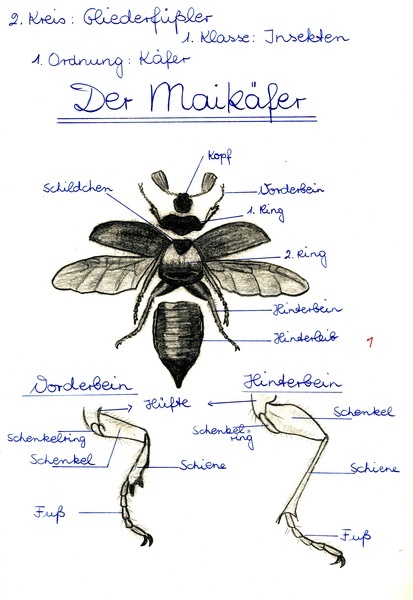 2. Kreis: Gliederfüßler
1. Klasse: Insekten
1. Ordnung: Käfer
Der Maikäfer
Kopf
Schildchen
Vorderbein
1. Ring
2. Ring
Hinterbein
Hinterleib
1
Vorderbein
Hinterbein
Hüfte
Schenkel
Schenkelring
Schenkel=
ring
Schenkel
Schiene
Schiene
Fuß
Fuß